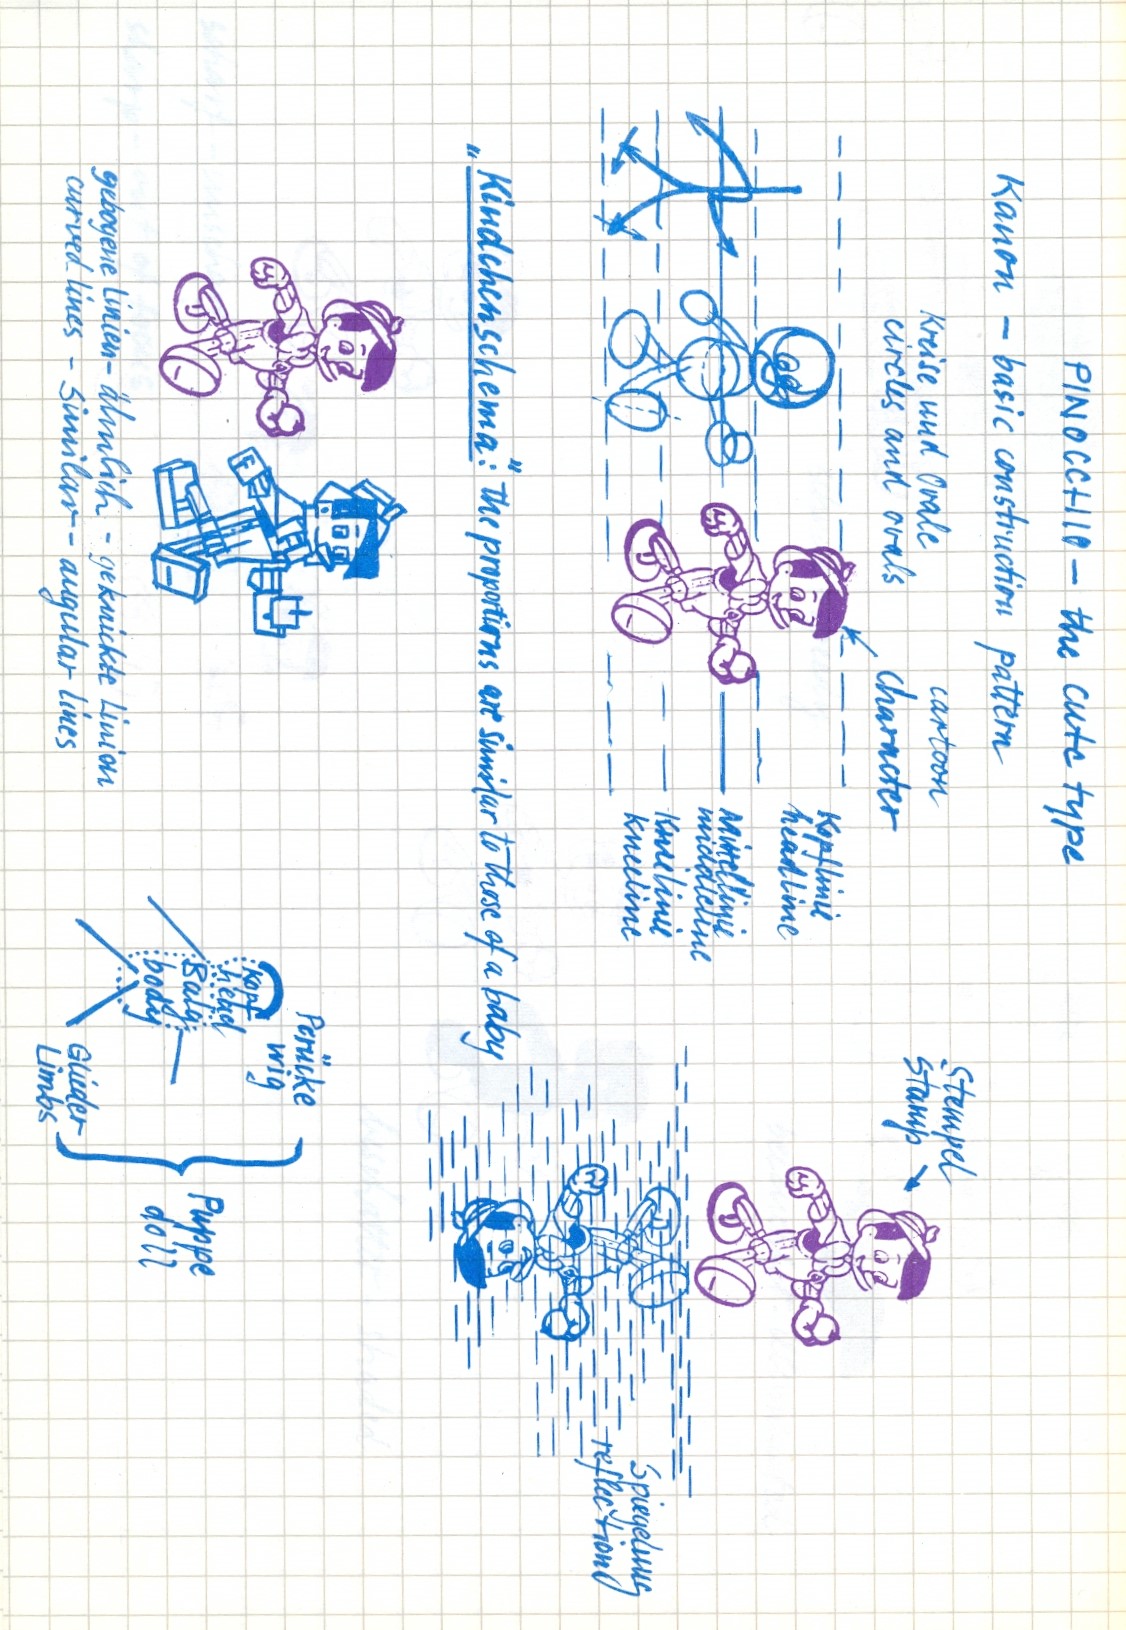 PINOCCHIO – the cute type
Kanon – basic construction pattern
Kreise und Ovale
circles and ovals
cartoon
character
Kopflinie
headline
Mittellinie
middleline
Knielinie
kneeline
"Kindchenschema:" the propotions are similar to those of a baby
gebogene Linien - ähnlich - geknickte Linien
curved lines - Similar - angular lines
Stempel
Stamp
Spiegelung
reflection
Perücke
wig
Kopf
head
Balg
body
Glieder
Limbs
Puppe
doll